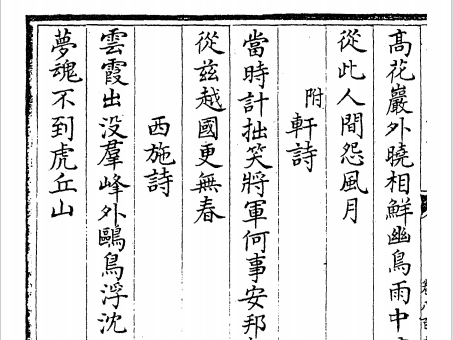 高花巖外曉相鮮幽鳥雨中
從此人間怨風月
附軒詩
當時計拙笑將軍何事安邦
從茲越國更無春
西施詩
雲霞出没羣峰外鷗鳥浮沈
夢魂不到虎丘山